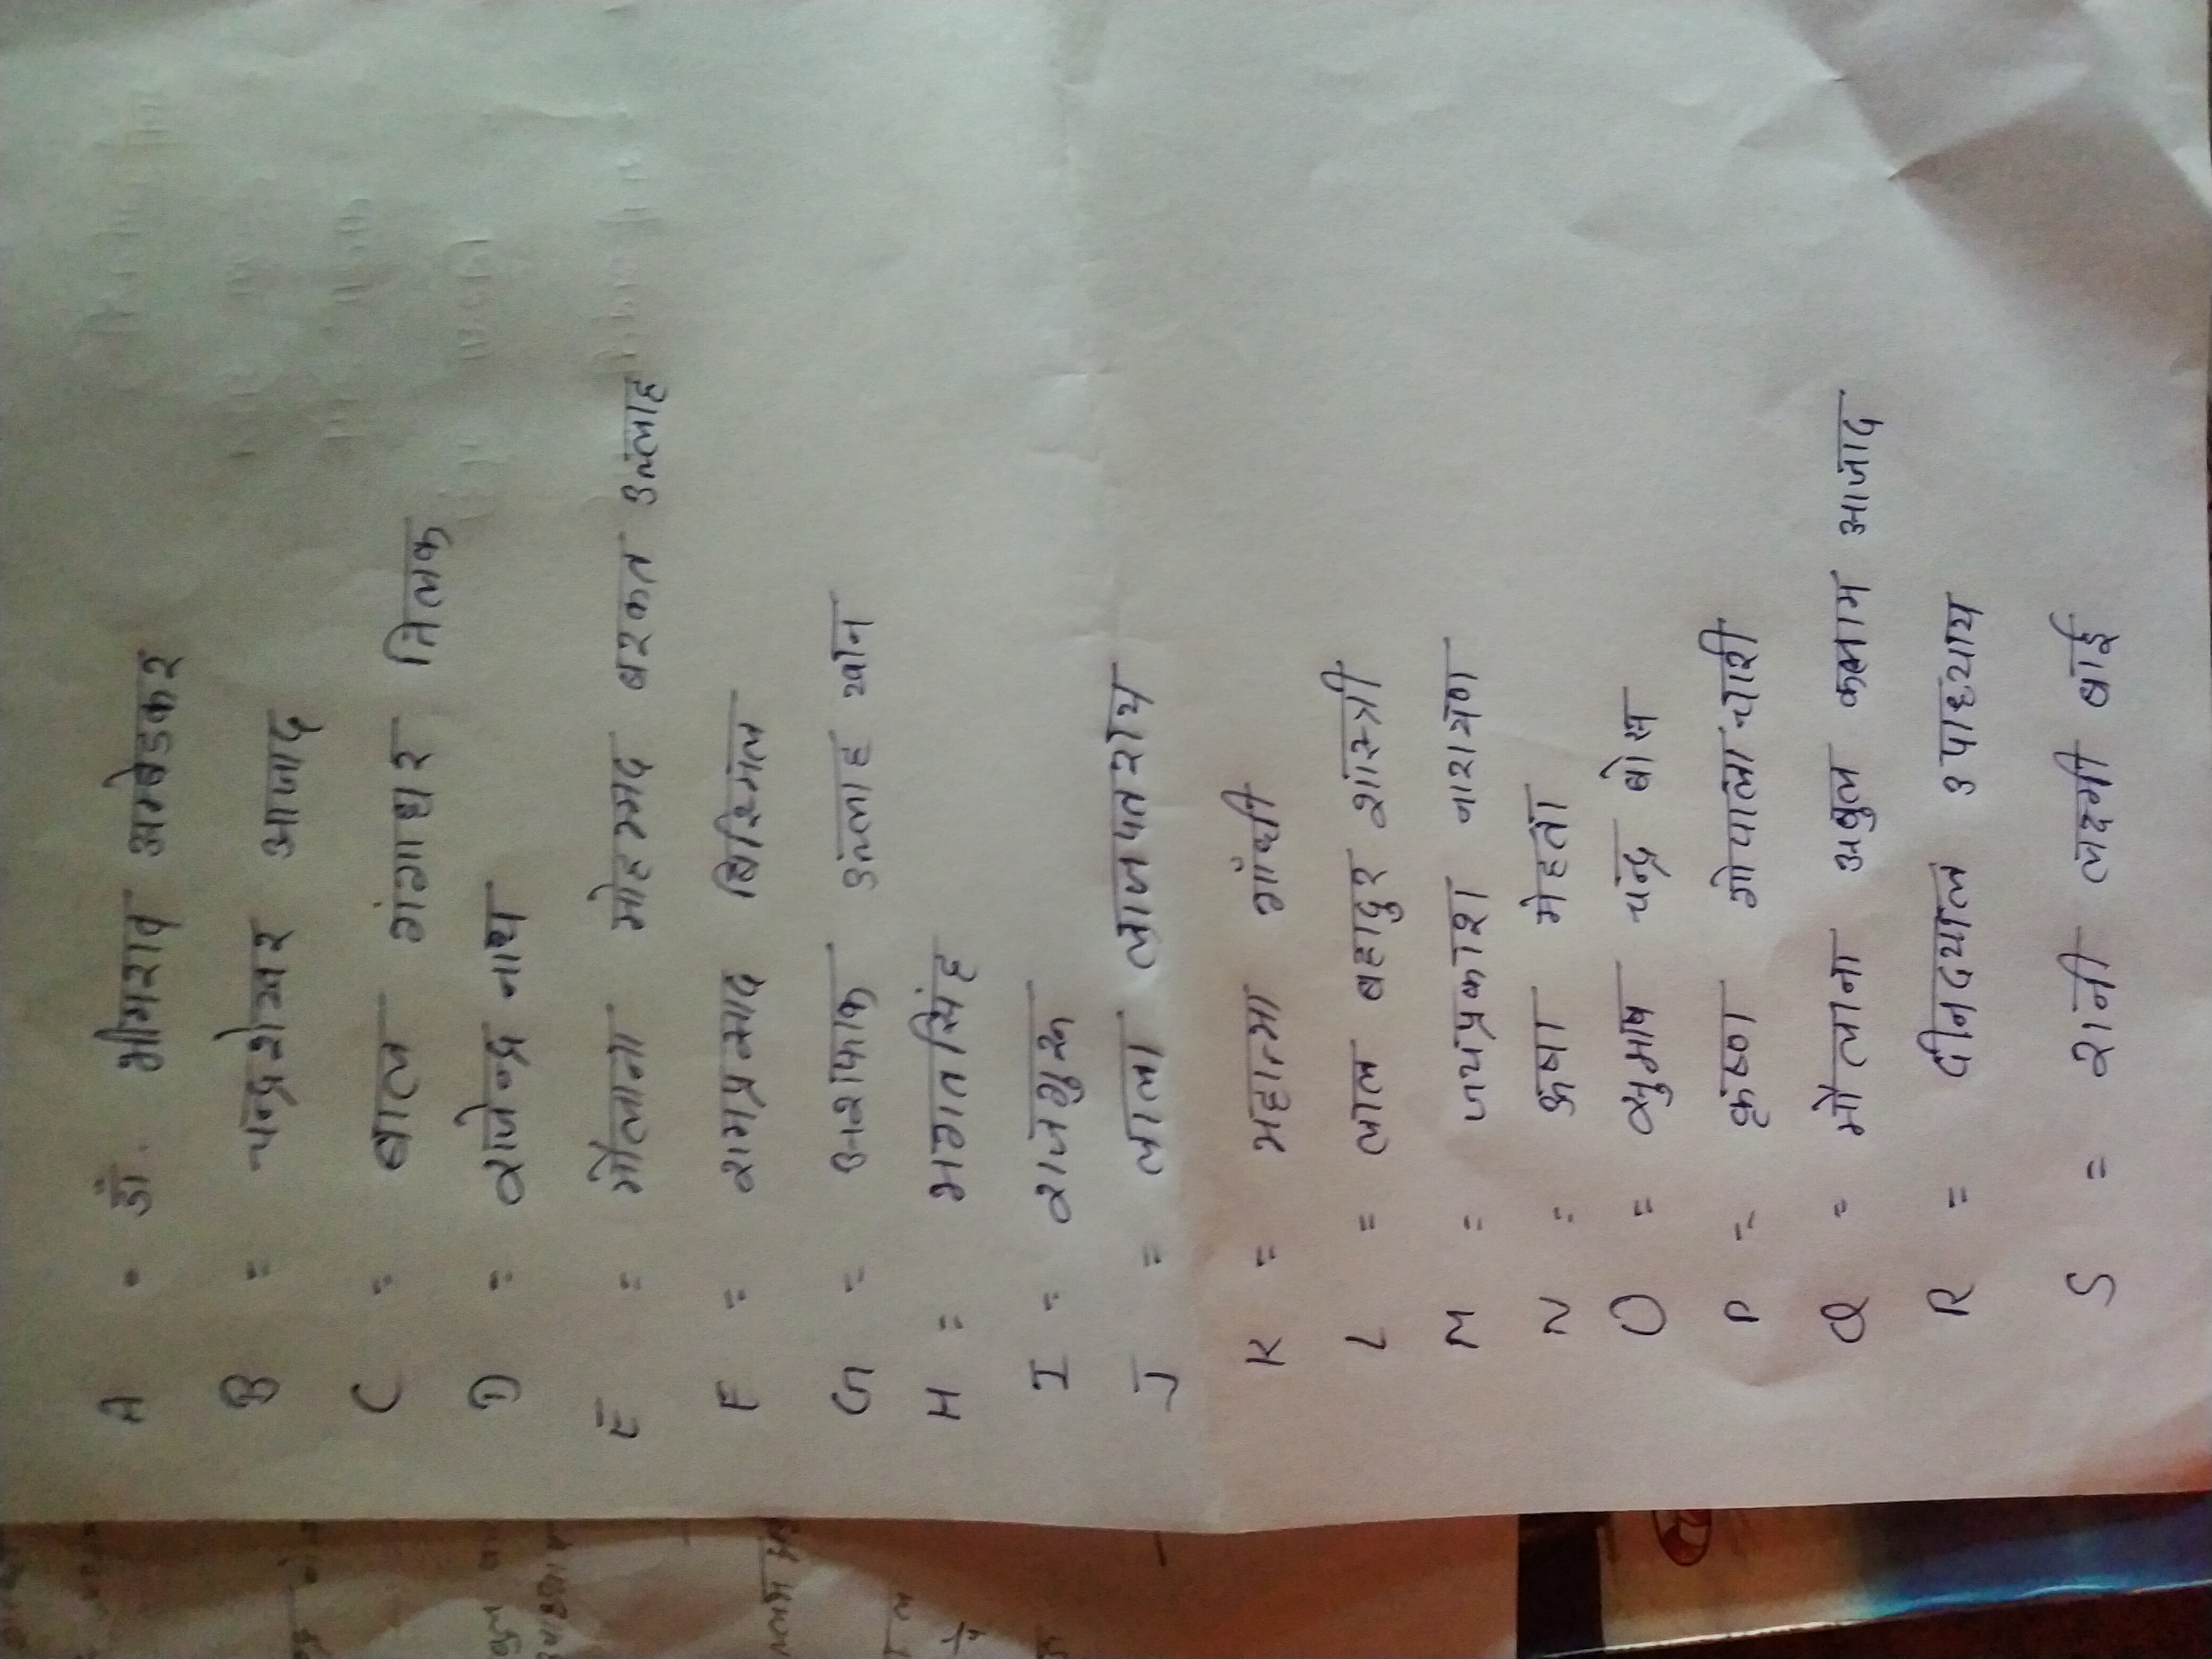 A = डॉ. भीमराव अम्बेडकर
B = चन्द्रशेखर आजाद
C = बाल गंगाधर तिलक
D = राजेन्द्र नाथ
E = मौलाना मोहम्मद बरकत उल्लाह
F = रामप्रसाद बिस्मिल
G = अशफाक उल्लाह खान
H = भगतसिंह
I = राजगुरू
J = लाला लाजपतराय
K = महात्मा गाँधी
L = लाल बहादुर शास्त्री
M = जयप्रकाश नारायण
N = ऊषा मेहता
O = सुभाष चन्द्र बोस
P = कृष्ण गोपालाचारी
Q = मौलाना अबुल कलाम आजाद
R = दीनदयाल उपाध्याय
S = रानी लक्ष्मी बाई